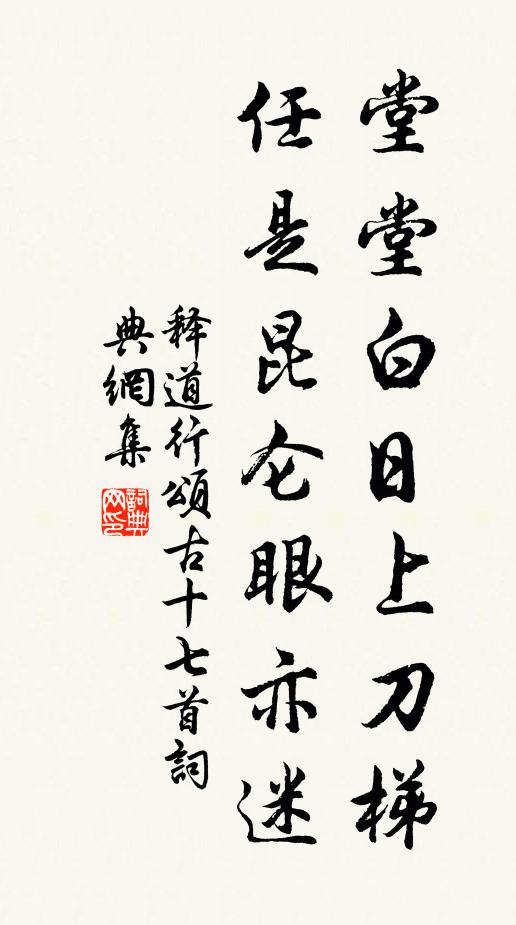 堂堂白日上刀梯
任是昆仑眼亦迷
释道行頌古十七首詞
典網集
詞典网印